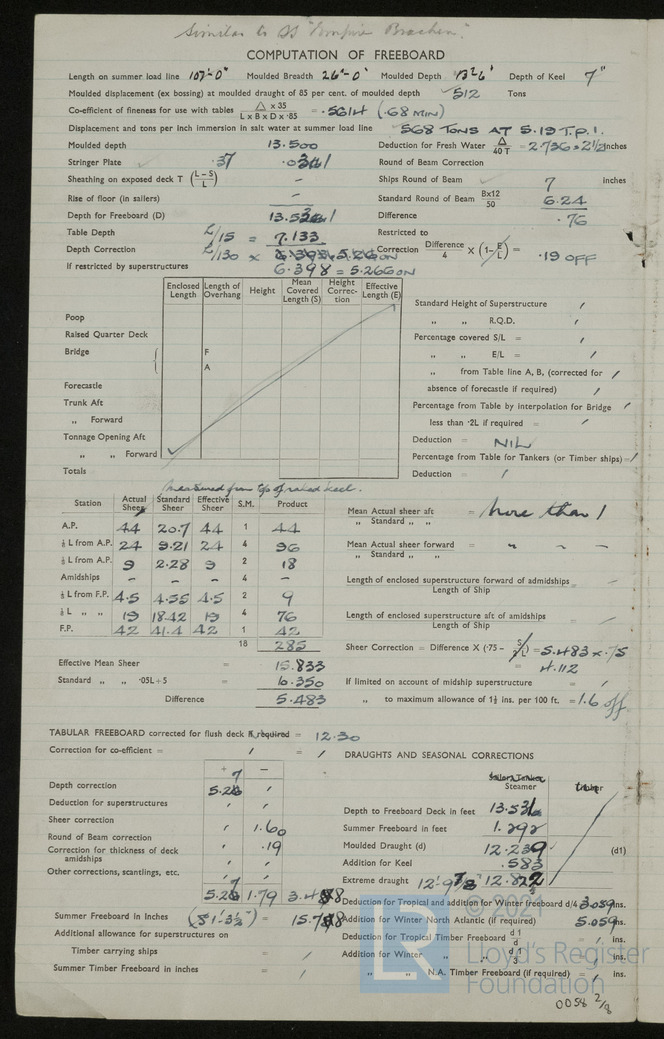 Similar to SS "Empire Bracken".
COMPUTATION OF FREEBOARD
Length on summer load line 107'-0" Moulded Breadth 26'-0" Moulded Depth 13'-6" Depth of Keel 7"
Moulded displacement (ex bossing) at moulded draught of 85 per cent. of moulded depth 512 Tons
Co-efficient of fineness for use with tables △ x 35 / L x B x D x ·85 = .5614 (.68 MIN)
Displacement and tons per inch immersion in salt water at summer load line 568 TONS AT 5.19 T.P.I.
Moulded depth 13.500 Deduction for Fresh Water △ / 40 T = 2.736 = 2½ inches
Stringer Plate .37 Round of Beam Correction
Sheathing on exposed deck T (L–S / L) – Ships Round of Beam 7 inches
Rise of floor (in sailers) – Standard Round of Beam Bx12 / 50 6.24
Depth for Freeboard (D) Difference .76
Table Depth L/15 = 7.133 Restricted to
Depth Correction L/130 x Correction Difference / 4 X (1– E / L) = .19 OFF
If restricted by superstructures 6.398 = 5.266 ON
Enclosed Length Length of Overhang Height Mean Covered Length (S) Height Correc- tion Effective Length (E)
Poop Standard Height of Superstructure /
Raised Quarter Deck „ „ R.Q.D. /
Bridge F Percentage covered S/L = /
A „ „ E/L = /
Forecastle „ from Table line A, B, (corrected for /
absence of forecastle if required) /
Trunk Aft Percentage from Table by interpolation for Bridge /
„ Forward less than ·2L if required = /
Tonnage Opening Aft Deduction = NIL
„ „ Forward Percentage from Table for Tankers (or Timber ships) = /
Totals Deduction = /
Measured from top of raked keel.
Station Actual Sheer Standard Sheer Effective Sheer S.M. Product
Mean Actual sheer aft / „ Standard „ „ = More than 1
A.P. 44 20.7 44 1 44
⅙ L from A.P. 24 9.21 24 4 96
Mean Actual sheer forward / „ Standard „ „ = „ – „
⅓ L from A.P. 9 2.28 9 2 18
Amidships – – – 4 –
Length of enclosed superstructure forward of admidships / Length of Ship = –
⅓ L from F.P. 4.5 4.55 4.5 2 9
⅙ L „ „ 19 18.42 19 4 76
Length of enclosed superstructure aft of amidships / Length of Ship = /
F.P. 42 41.4 42 1 42
18 285
Sheer Correction = Difference X (·75 – S / 2L) = 5.483 x .75
= 4.112
Effective Mean Sheer = 15.833
Standard „ „ ·05L+5 = 10.350
If limited on account of midship superstructure = /
Difference 5.483
„ to maximum allowance of 1½ ins. per 100 ft. = 1.6 off
TABULAR FREEBOARD corrected for flush deck if required = 12.30
Correction for co-efficient = / = /
DRAUGHTS AND SEASONAL CORRECTIONS
+ –
Steamer
Depth correction
Deduction for superstructures / /
Depth to Freeboard Deck in feet
Sheer correction / 1.60
Summer Freeboard in feet 1.292
Round of Beam correction / .19
Moulded Draught (d) 12.239 (d1)
Correction for thickness of deck amidships / /
Addition for Keel .583
Other corrections, scantlings, etc.
Extreme draught 12'-9⅞" 12.822
1.79
Deduction for Tropical and addition for Winter freeboard d/4 3.059 ins.
Summer Freeboard in Inches (S 1'-3½") =
Addition for Winter North Atlantic (if required) 5.059 ins.
Additional allowance for superstructures on
Deduction for Tropical Timber Freeboard d1 / d = / ins.
Timber carrying ships = /
Addition for Winter „ d1 / 3 = / ins.
Summer Timber Freeboard in inches = /
„ „ N.A. Timber Freeboard (if required) = / ins.
© 2021
LR
Lloyd's Register
Foundation
0058 2/8